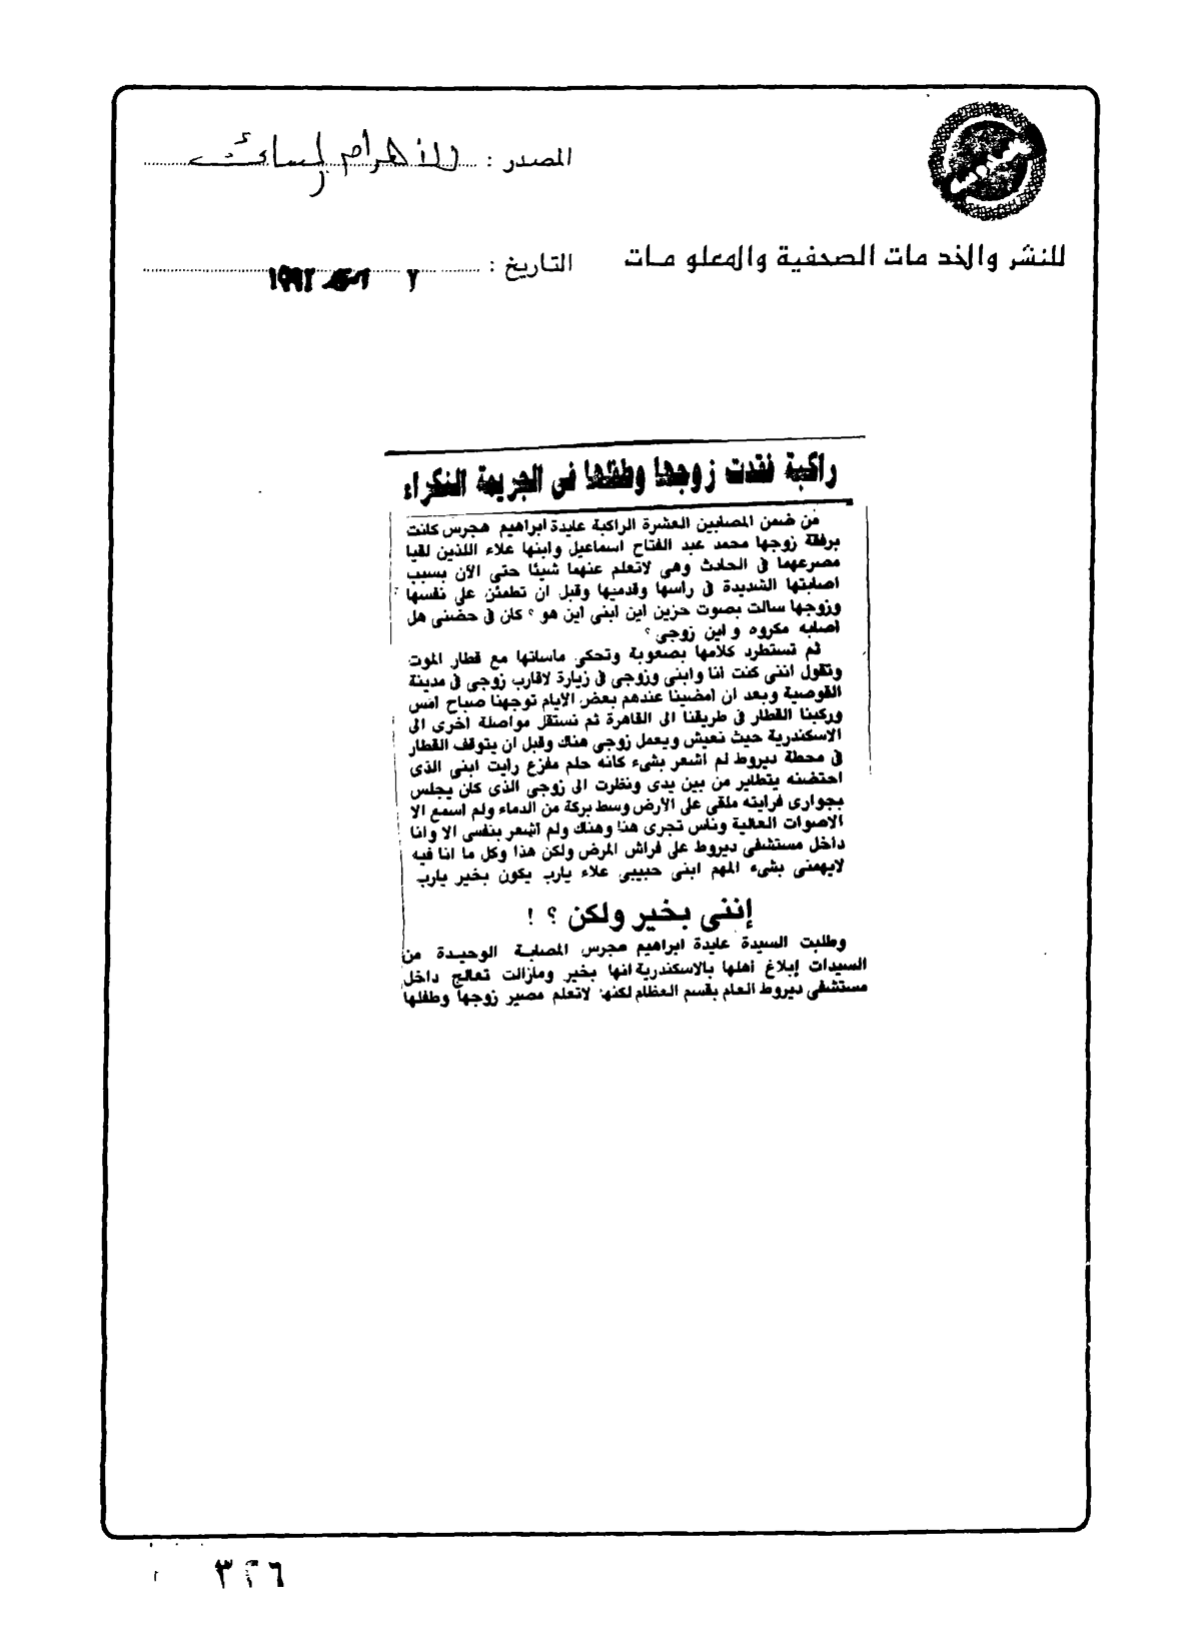 المصدر : الأهرام المسائى
للنشر والخدمات الصحفية والمعلومات
التاريخ : ٢ ١٩٩٢
راكبة فقدت زوجها وطفلها فى الجريمة النكراء
من ضمن المصابين العشرة الراكبة عايدة ابراهيم هجرس كانت
برفقة زوجها محمد عبد الفتاح اسماعيل وابنها علاء اللذين لقيا
مصرعهما فى الحادث وهى لاتعلم عنهما شيئا حتى الآن بسبب
اصابتها الشديدة فى رأسها وقدميها وقبل ان تطمئن على نفسها
وزوجها سالت بصوت حزين اين ابنى اين هو ؟ كان فى حضنى هل
أصابه مكروه و اين زوجى ؟
ثم تستطرد كلامها بصعوبة وتحكى ماساتها مع قطار الموت
وتقول اننى كنت أنا وابنى وزوجى فى زيارة لاقارب زوجى فى مدينة
القوصية وبعد ان امضينا عندهم بعض الايام توجهنا صباح امس
وركبنا القطار فى طريقنا الى القاهرة ثم نستقل مواصلة اخرى الى
الاسكندرية حيث نعيش ويعمل زوجى هناك وقبل ان يتوقف القطار
فى محطة ديروط لم اشعر بشىء كانه حلم مفزع رايت ابنى الذى
احتضنه يتطاير من بين يدى ونظرت الى زوجى الذى كان يجلس
بجوارى فرايته ملقى على الأرض وسط بركة من الدماء ولم اسمع الا
الاصوات العالية وناس تجرى هنا وهناك ولم أشعر بنفسى الا وانا
داخل مستشفى ديروط على فراش المرض ولكن هذا وكل ما انا فيه
لايهمنى بشىء المهم ابنى حبيبى علاء يارب يكون بخير يارب
إننى بخير ولكن ؟ !
وطلبت السيدة عايدة ابراهيم هجرس المصابة الوحيدة من
السيدات إبلاغ أهلها بالاسكندرية انها بخير ومازالت تعالج داخل
مستشفى ديروط العام بقسم العظام لكنها لاتعلم مصير زوجها وطفلها
٣٢٦